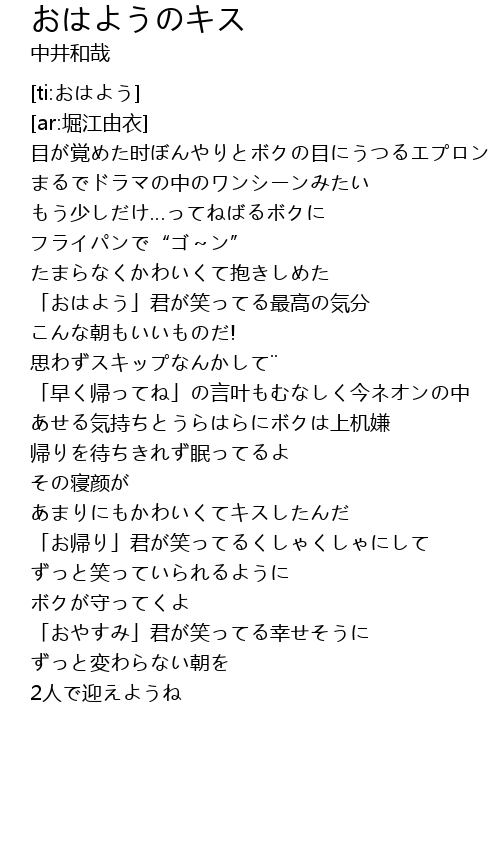 おはようのキス
中井和哉
[ti:おはよう]
[ar:堀江由衣]
目が覚めた时ぼんやりとボクの目にうつるエプロン
まるでドラマの中のワンシーンみたい
もう少しだけ...ってねばるボクに
フライパンで“ゴ～ン”
たまらなくかわいくて抱きしめた
「おはよう」君が笑ってる最高の気分
こんな朝もいいものだ!
思わずスキップなんかして¨
「早く帰ってね」の言叶もむなしく今ネオンの中
あせる気持ちとうらはらにボクは上机嫌
帰りを待ちきれず眠ってるよ
その寝颜が
あまりにもかわいくてキスしたんだ
「お帰り」君が笑ってるくしゃくしゃにして
ずっと笑っていられるように
ボクが守ってくよ
「おやすみ」君が笑ってる幸せそうに
ずっと変わらない朝を
2人で迎えようね